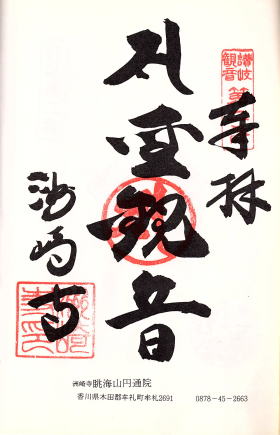 讃岐
観音
奉拝
聖観音
洲崎寺
洲崎寺 眺海山円通院
香川県木田郡牟礼町牟礼2691 0878-45-2663